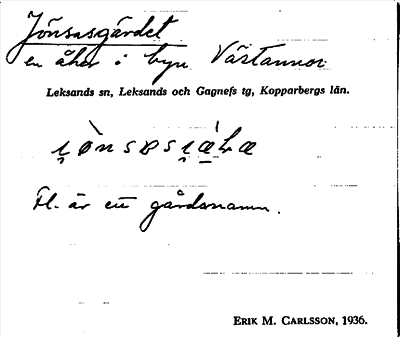 Jönsasgärdet
en åker i byn Västannor
Leksands sn, Leksands och Gagnefs tg, Kopparbergs län.
är ett gårdsnamn.
ERIK M. CARLSSON, 1936.